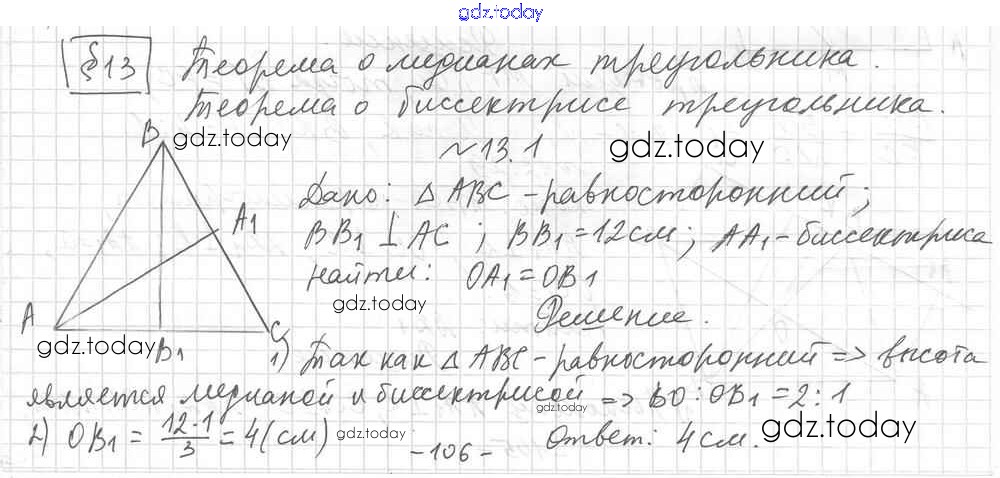 gdz.today
§13 Теорема о медианах треугольника.
Теорема о биссектрисе треугольника.
B gdz.today
~13.1 gdz.today
Дано: △ABC - равносторонний;
A1
BB1 ⊥ AC ; BB1 = 12см; AA1 - биссектриса
Найти: OA1 = OB1
gdz.today
A
Решение.
C
gdz.today B1
1) Так как △ABC - равносторонний => высота
является медианой и биссектрисой => BO : OB1 = 2 : 1
gdz.today
2) OB1 = 12·1/3 = 4(см) gdz.today Ответ: 4см. gdz.today
-106-